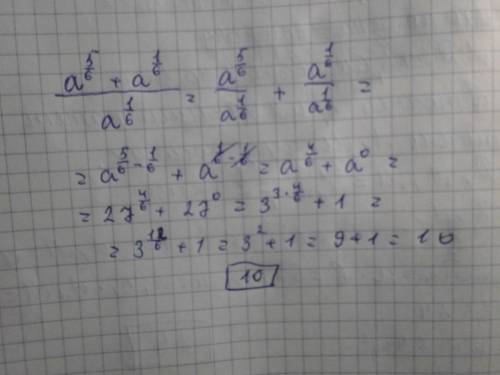 (a^(5/6) + a^(1/6)) / a^(1/6) = a^(5/6) / a^(1/6) + a^(1/6) / a^(1/6) =
= a^(5/6 - 1/6) + a^(1/6 - 1/6) = a^(4/6) + a^0 =
= 27^(4/6) + 27^0 = 3^(3·4/6) + 1 =
= 3^(12/6) + 1 = 3^2 + 1 = 9 + 1 = 10
10